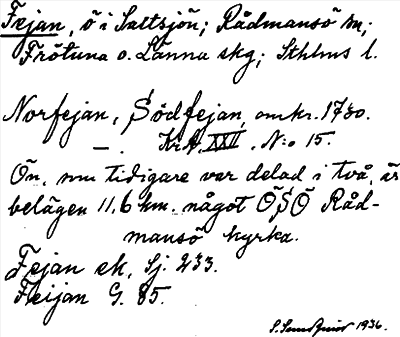 Fejan, ö i Saltsjön; Rådmansö sn;
Frötuna o. Länna skg; Sthlms l.
Norfejan, Södfejan, omkr. 1730.
— . Kr.A. XXII. N:o 15.
Ön, nu tidigare var delad i två, är
belägen 11,6 km. något OSO Råd-
mansö kyrka.
Fejan ek. Sj. 233.
Feijan G. 85.
1936.